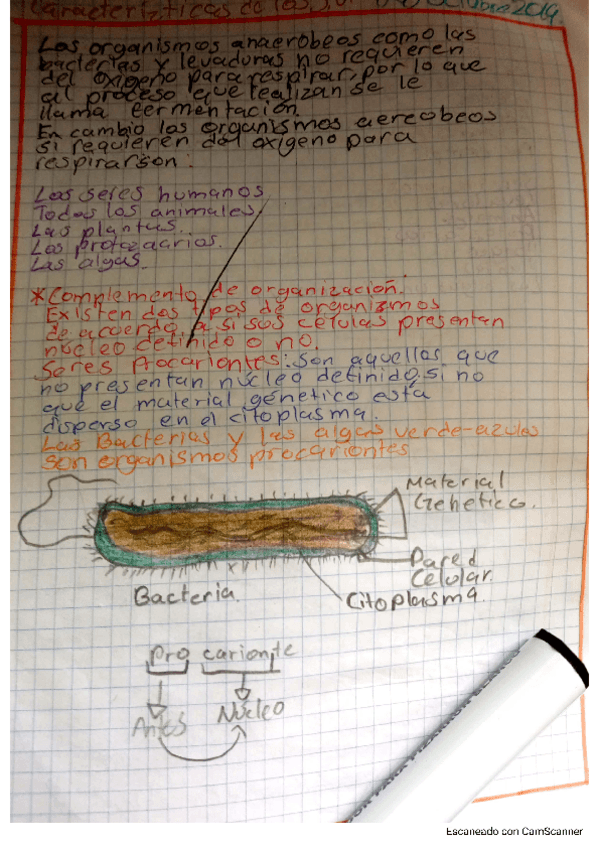 Caracteristicas de los S.V. Octubre 2019.
Los organismos anaerobeos como las
bacterias y levaduras no requieren
del oxigeno para respirar, por lo que
al proceso que realizan se le
llama fermentación.
En cambio los organismos aereobeos
si requieren del oxigeno para
respirarson:
Los seres humanos
Todos los animales
Las plantas.
Los protozoarios.
Las algas.
*Complemento de organización.
Existen dos tipos de organizmos
de acuerdo a si sus células presentan
núcleo definido o no.
Seres Procariontes: Son aquellos que
no presentan núcleo definido, si no
que el material génetico está
disperso en el citoplasma.
Las Bacterias y las algas verde-azules
son organismos procariontes
Material
Genetico.
Pared
Celular.
Citoplasma.
Bacteria.
Pro carionte
Antes Núcleo
Escaneado con CamScanner